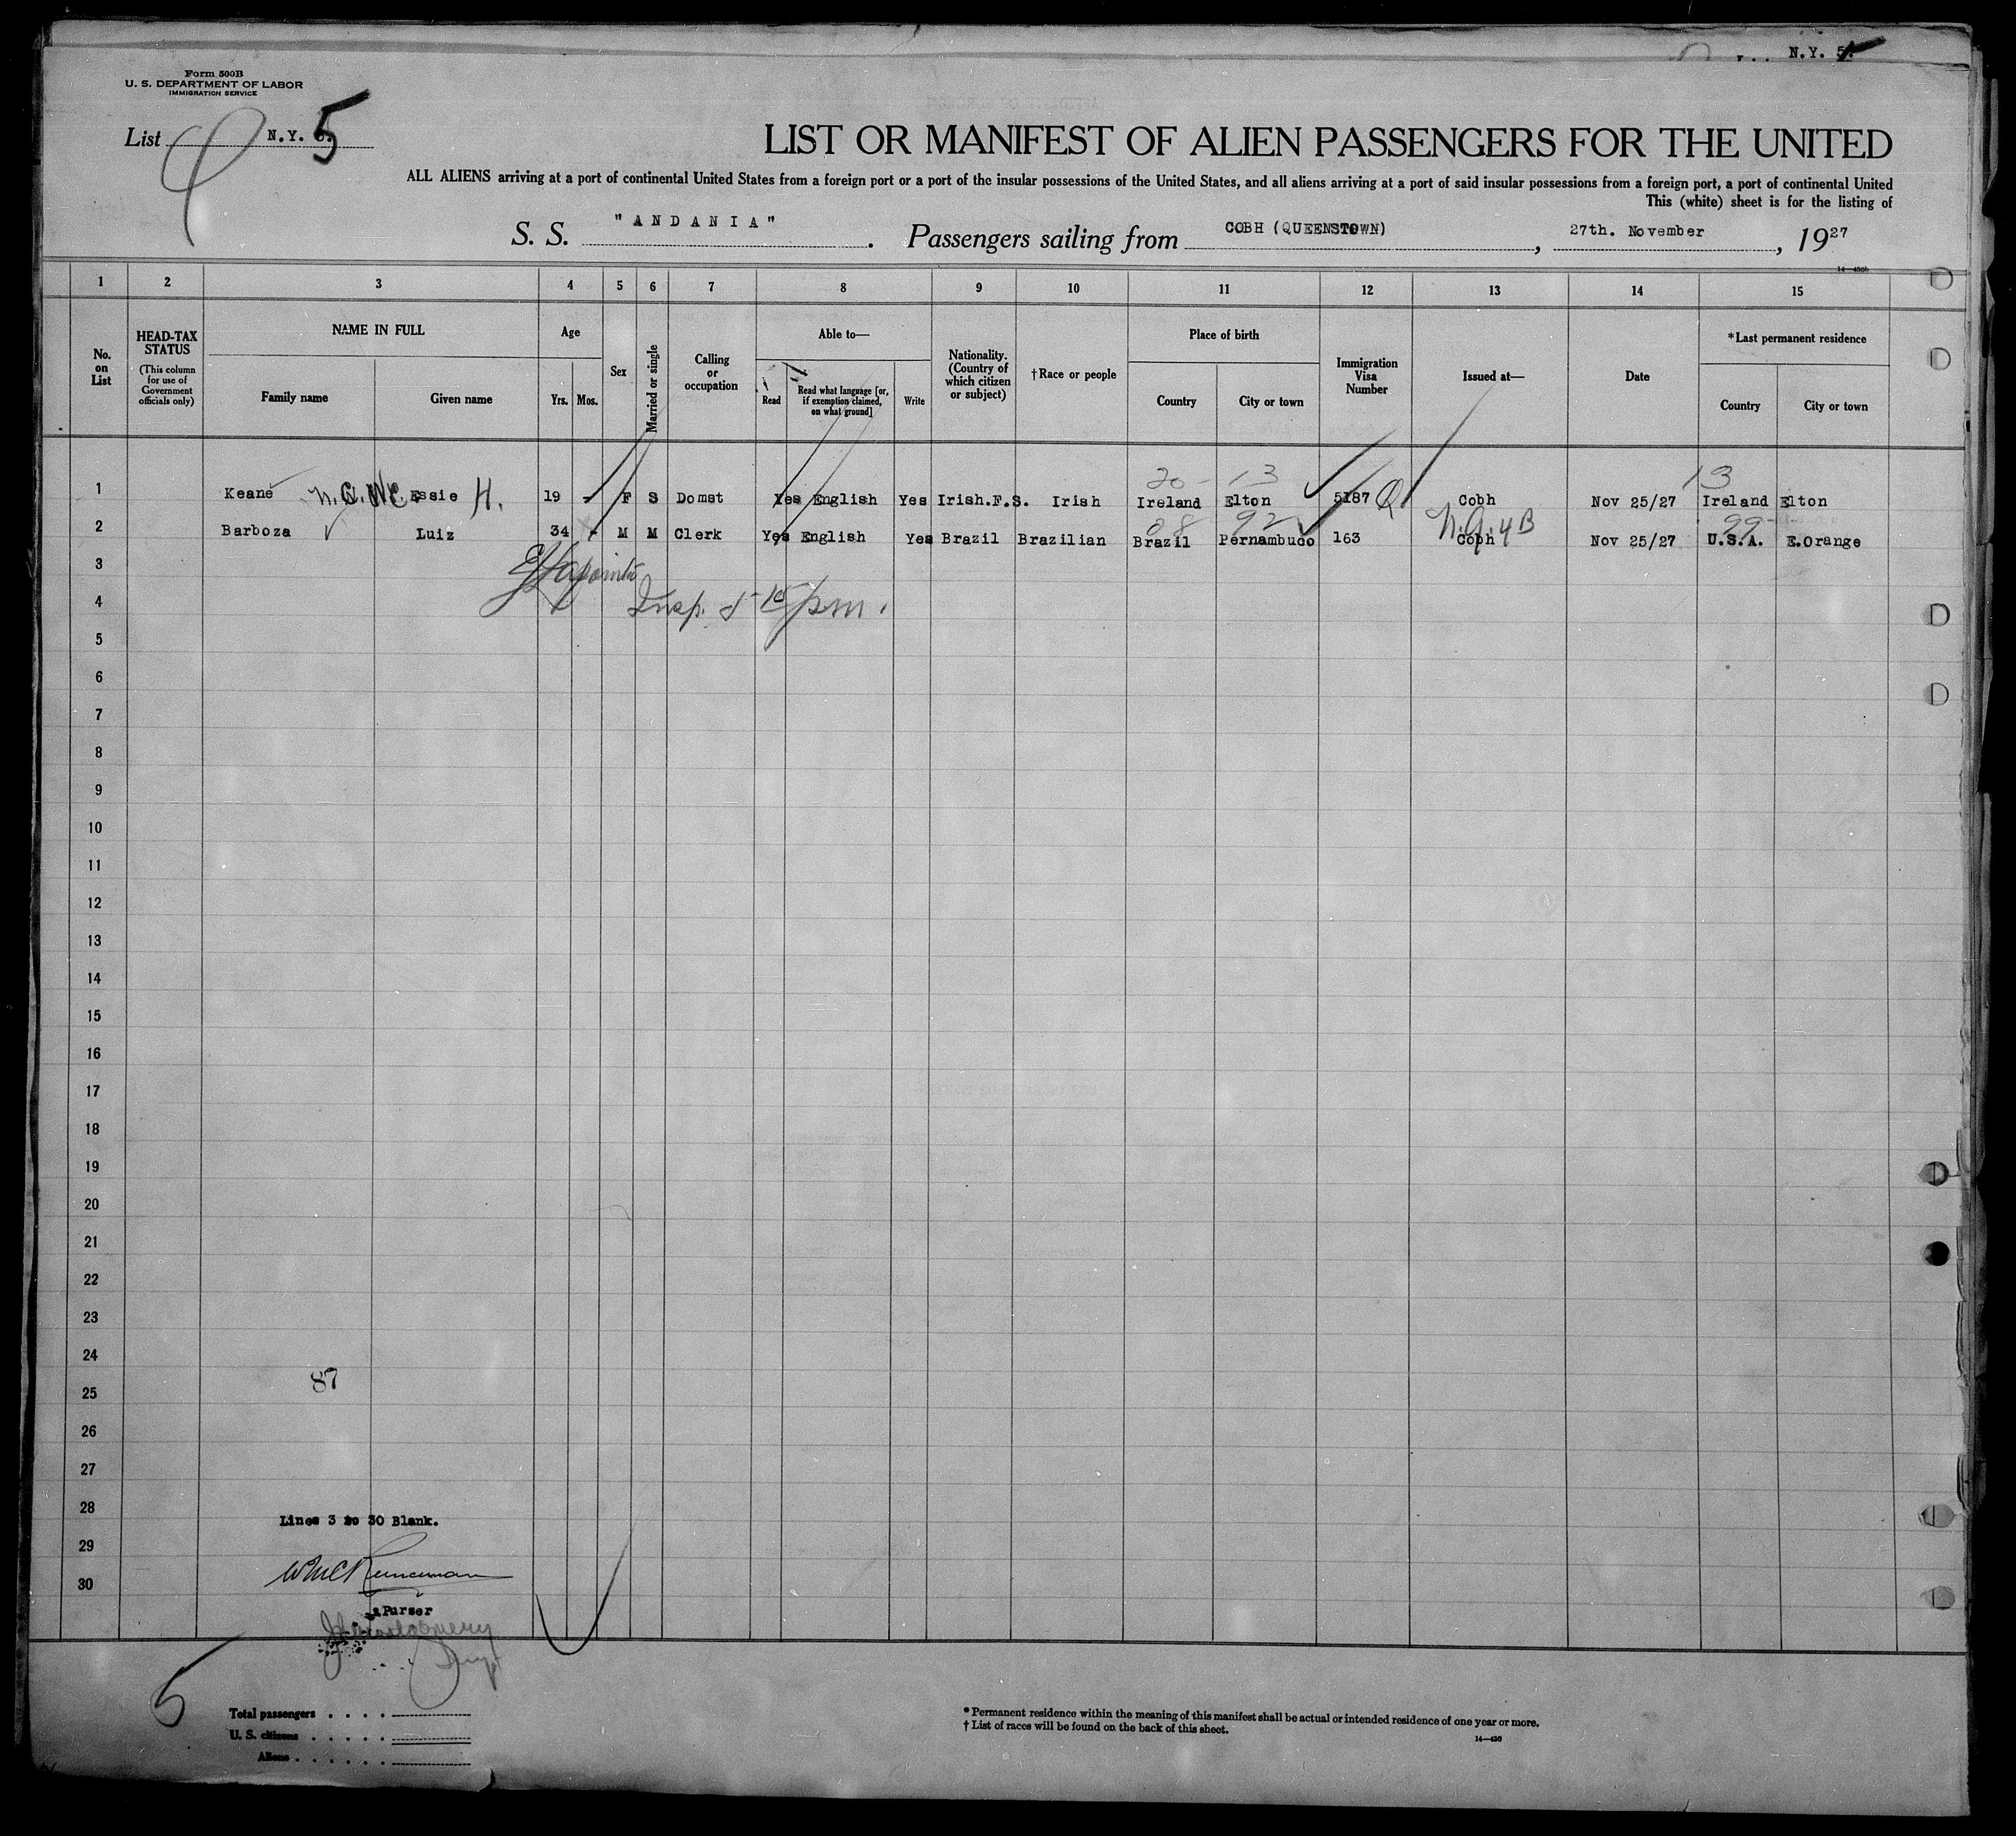 N.Y. 5.
Form 500B
U. S. DEPARTMENT OF LABOR
IMMIGRATION SERVICE
List N.Y. 5
LIST OR MANIFEST OF ALIEN PASSENGERS FOR THE UNITED
ALL ALIENS arriving at a port of continental United States from a foreign port or a port of the insular possessions of the United States, and all aliens arriving at a port of said insular possessions from a foreign port, a port of continental United
This (white) sheet is for the listing of
S. S. "ANDANIA" . Passengers sailing from COBH (QUEENSTOWN) , 27th. November , 1927
14—450b
1 2 3 4 5 6 7 8 9 10 11 12 13 14 15
No. on List
HEAD-TAX STATUS
(This column for use of Government officials only)
NAME IN FULL
Family name
Given name
Age
Yrs.
Mos.
Sex
Married or single
Calling or occupation
Able to—
Read
Read what language [or, if exemption claimed, on what ground]
Write
Nationality. (Country of which citizen or subject)
†Race or people
Place of birth
Country
City or town
Immigration Visa Number
Issued at—
Date
*Last permanent residence
Country
City or town
20 - 13 13
1 Keane Essie H. 19 - F S Domst Yes English Yes Irish.F.S. Irish Ireland Elton 5187 Q Cobh Nov 25/27 Ireland Elton
08 92 99
2 Barboza Luiz 34 - M M Clerk Yes English Yes Brazil Brazilian Brazil Pernambuco 163 Cobh Nov 25/27 U.S.A. E.Orange
3
4 Insp. pm.
5
6
7
8
9
10
11
12
13
14
15
16
17
18
19
20
21
22
23
24
87
25
26
27
28
Lines 3 to 30 Blank.
29
30
Purser
5
Total passengers . . . .
U. S. citizens . . . . .
Aliens . . . . . .
* Permanent residence within the meaning of this manifest shall be actual or intended residence of one year or more.
† List of races will be found on the back of this sheet.
14—450